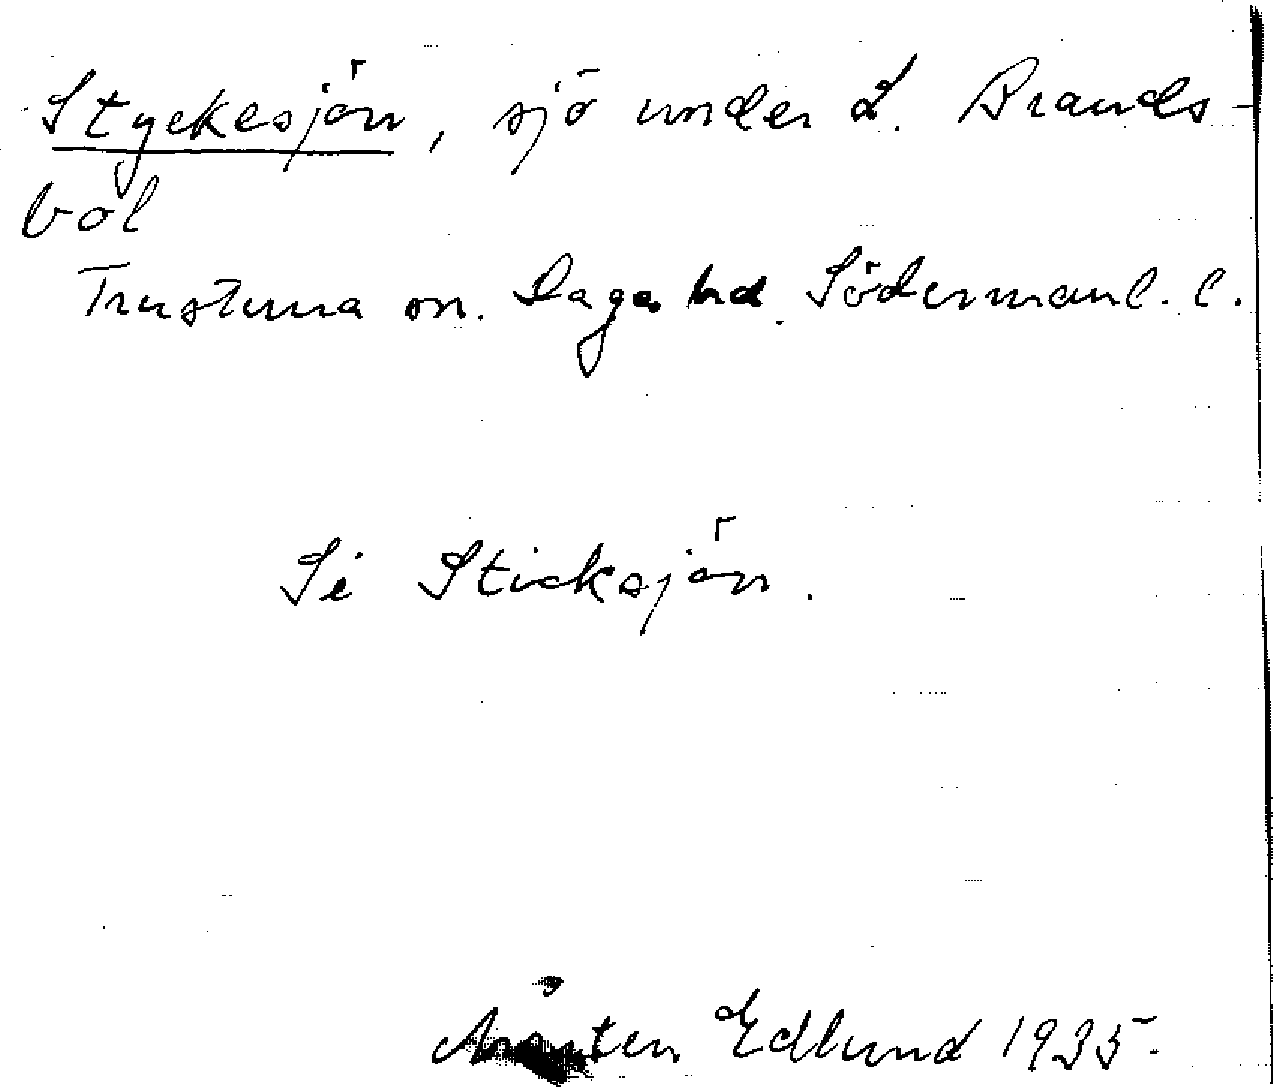 Styckesjön, sjö under L. Brands-
bol
Trustuna sn. Daga hd. Södermanl. l.
Se Sticksjön.
Mårten Edlund 1935.